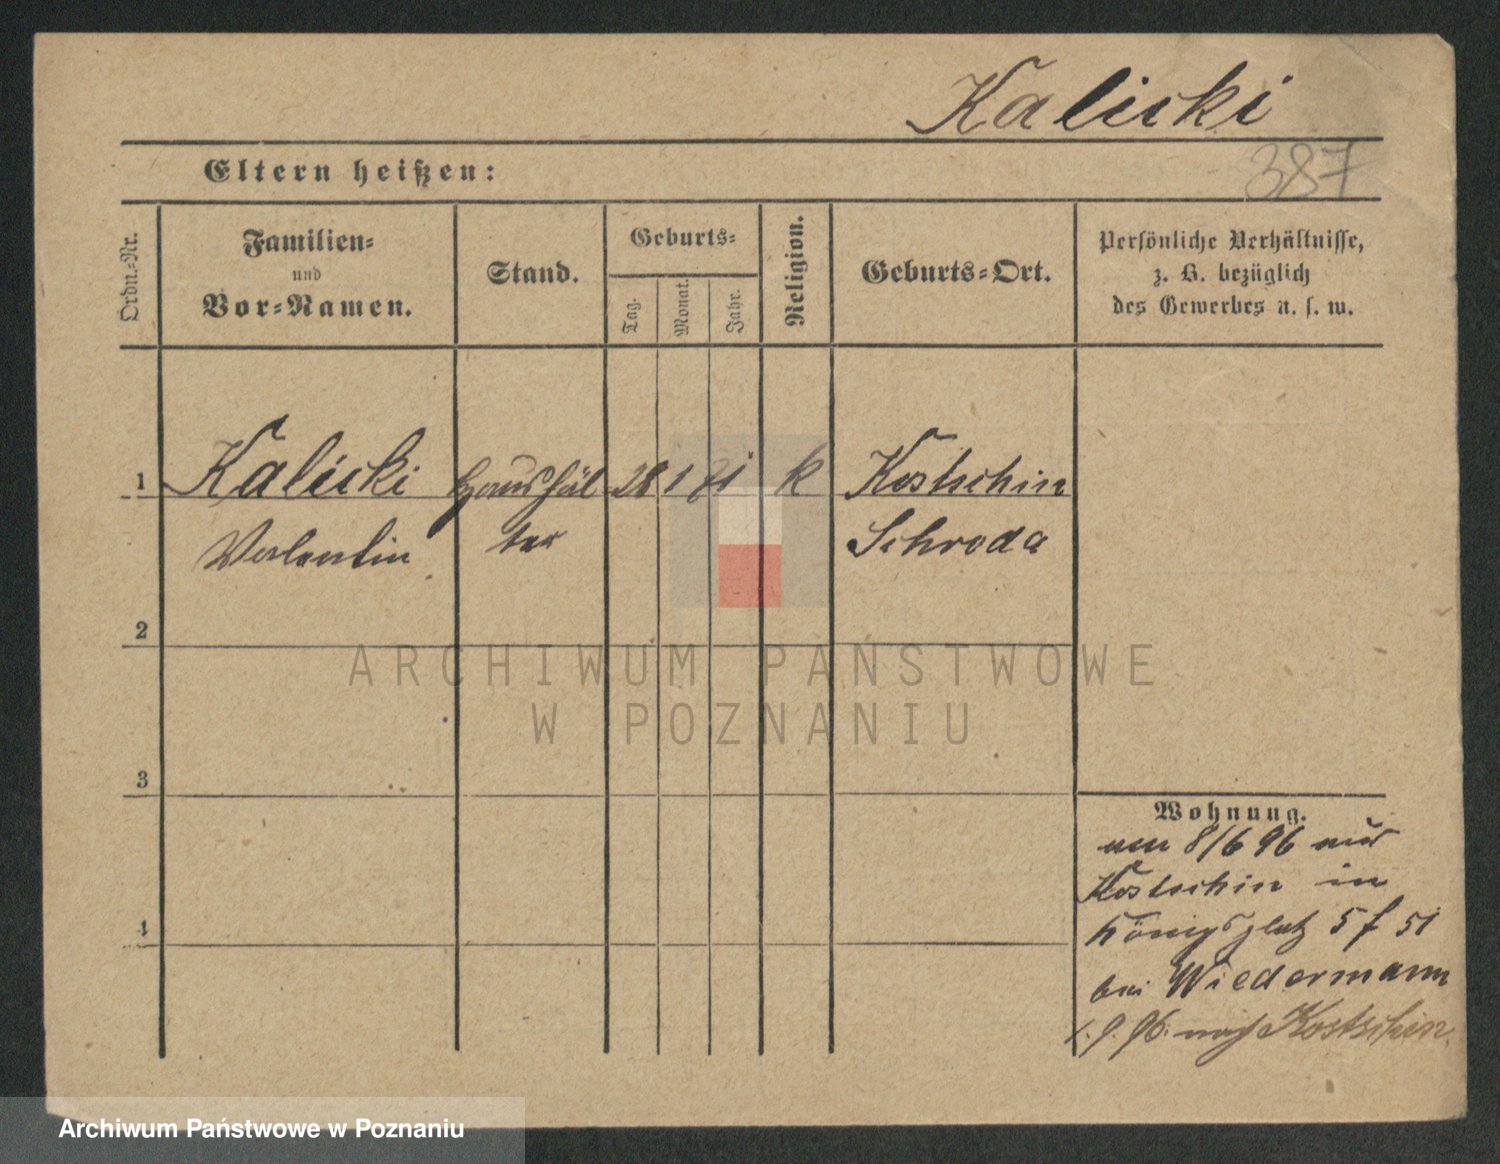 Kalicki
387
Eltern heißen:
Ordn.-Nr.
Familien-
und
Vor-Namen.
Stand.
Geburts-
Tag.
Monat.
Jahr.
Religion.
Geburts-Ort.
Persönliche Verhältnisse,
z. B. bezüglich
des Gewerbes u. s. w.
1 Kalicki Haushäl 28 1 71 k Kostschin
Valentin ter Schroda
2
3
4
Wohnung.
am 8/6 96 aus
Kostschin in
Königsplatz 5 f 51
bei Wiedermann
1.9.96. nach Kostschin.
ARCHIWUM PAŃSTWOWE
W POZNANIU
Archiwum Państwowe w Poznaniu